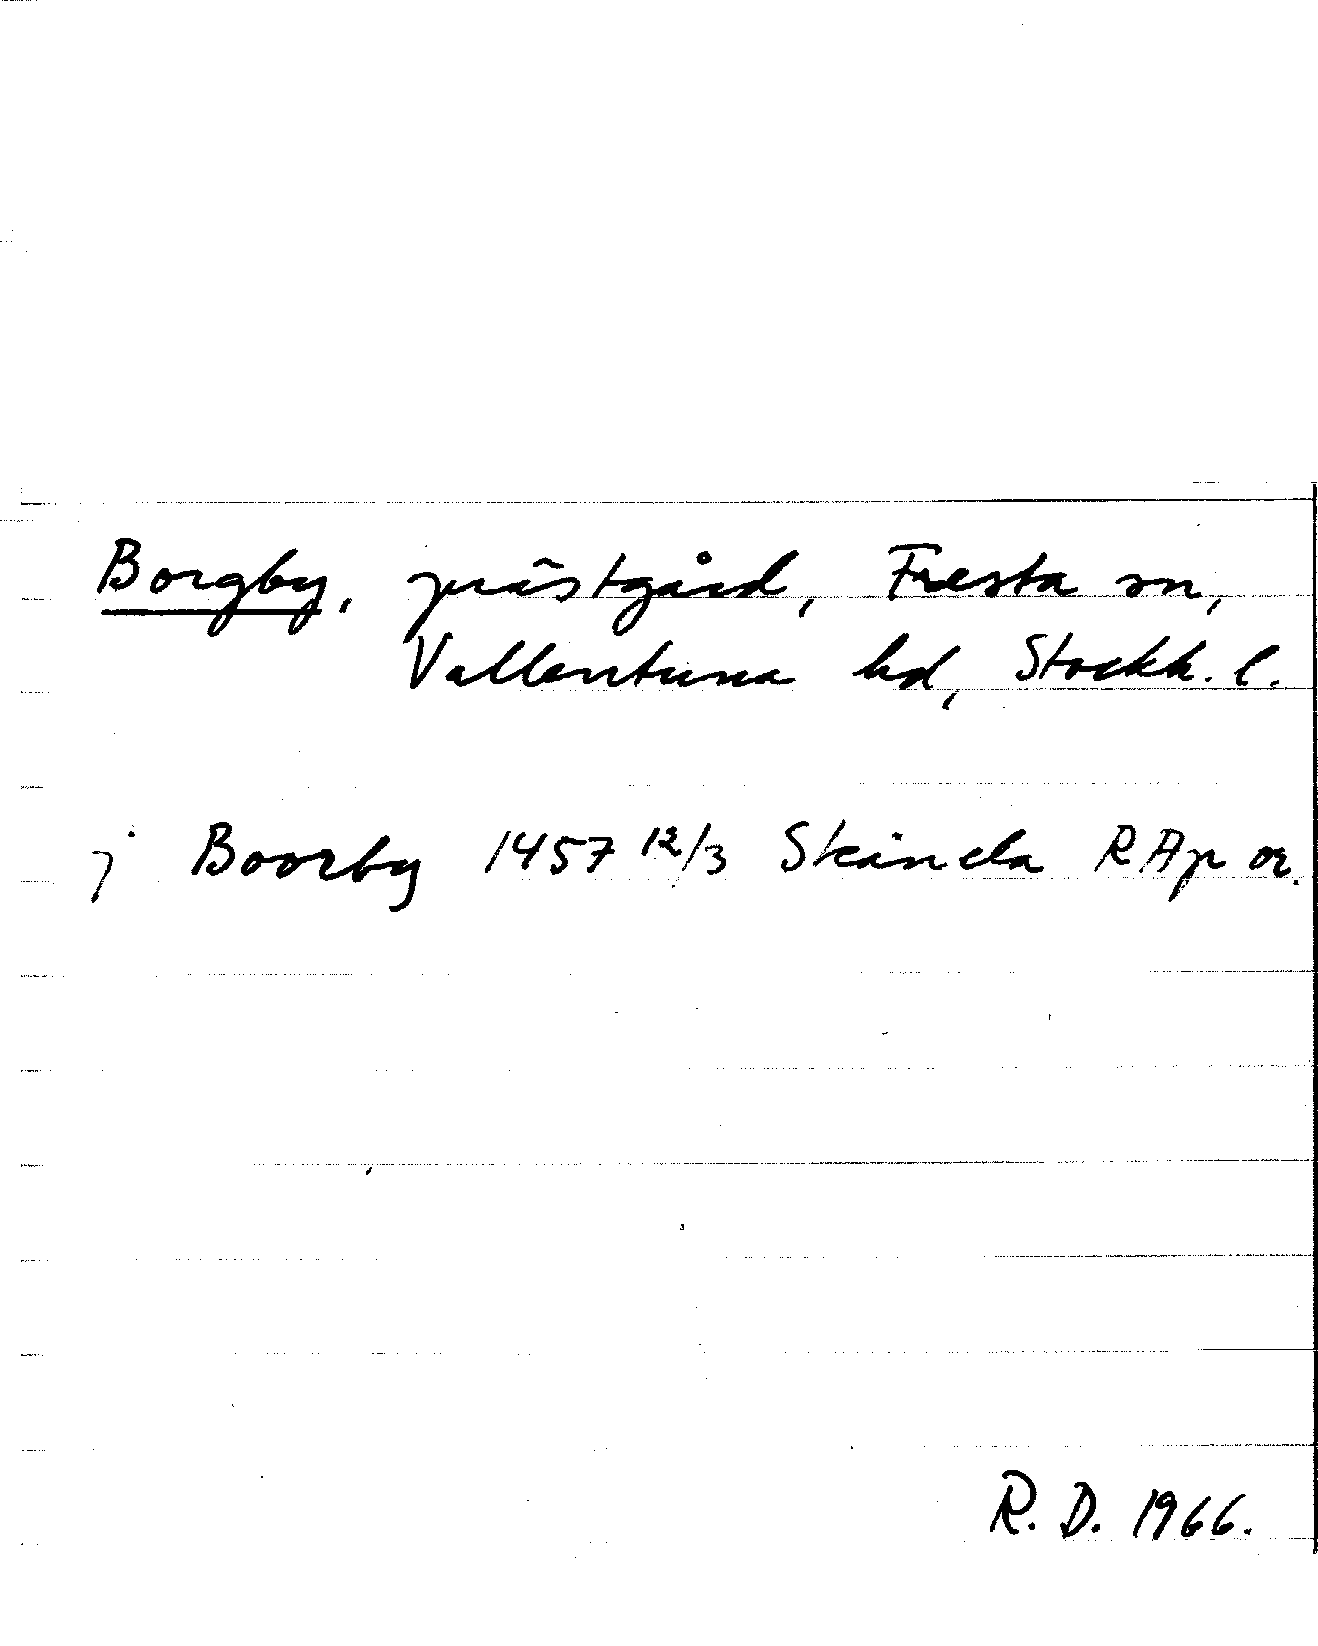 Borgby, prästgård, Fresta sn,
Vallentuna hd, Stockh. l.
j Boorby 1457 12/3 Skånela RAp or.
R. D. 1966.